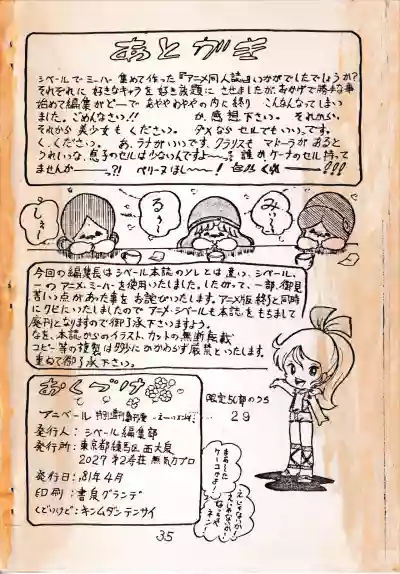 あとがき
シベールでミーハー集めて作った『アニメ同人誌』いかがでしたでしょうか?
それぞれに 好きなキャラを好き放題に させましたが、おかげで勝手な事
始めて編集がどーで あやややわやの内と終り こんなんなってしまい
ました。ごめんなさい!! が、感想 下さい。 それから、
それから 美少女も ください。 ダメなら セルでもいいです。
く、ください。 あ、ラナがいいです、クラリスも マドーラがあると
うれしいな、息子のセルは少ないんですよ〜〜。誰か ケーナのセル持って
ませんかーー?! ペリーヌほしー!
しぇー
るぅ〜
みぃー
今回の編集長はシベール本誌のソレとは違い、シベール、
一のアニメ・ミーハーを使用いたしました。したがって、一部、御見
苦しい点があった事をお詫びいたします。アニメ版終了と同時
にクビにいたしましたので アニメ・シベールも本誌をもちまして
廃刊となりますので御了承下さいますよう。
なを、本誌からのイラスト、カットの無断転載
コピー等の複製は多少にかかわらず厳禁といたします。
重ねて御了承下さい。
おくづけ
アニベール 特別増刊
発行人: シベール編集部
発行所: 東京都練馬区西大泉
2027 第2寿荘 無気力プロ
発行日: '81年4月
印刷: 書泉グランデ
くどいけど: キンムダンテンサイ
限定50部のうち
29
35